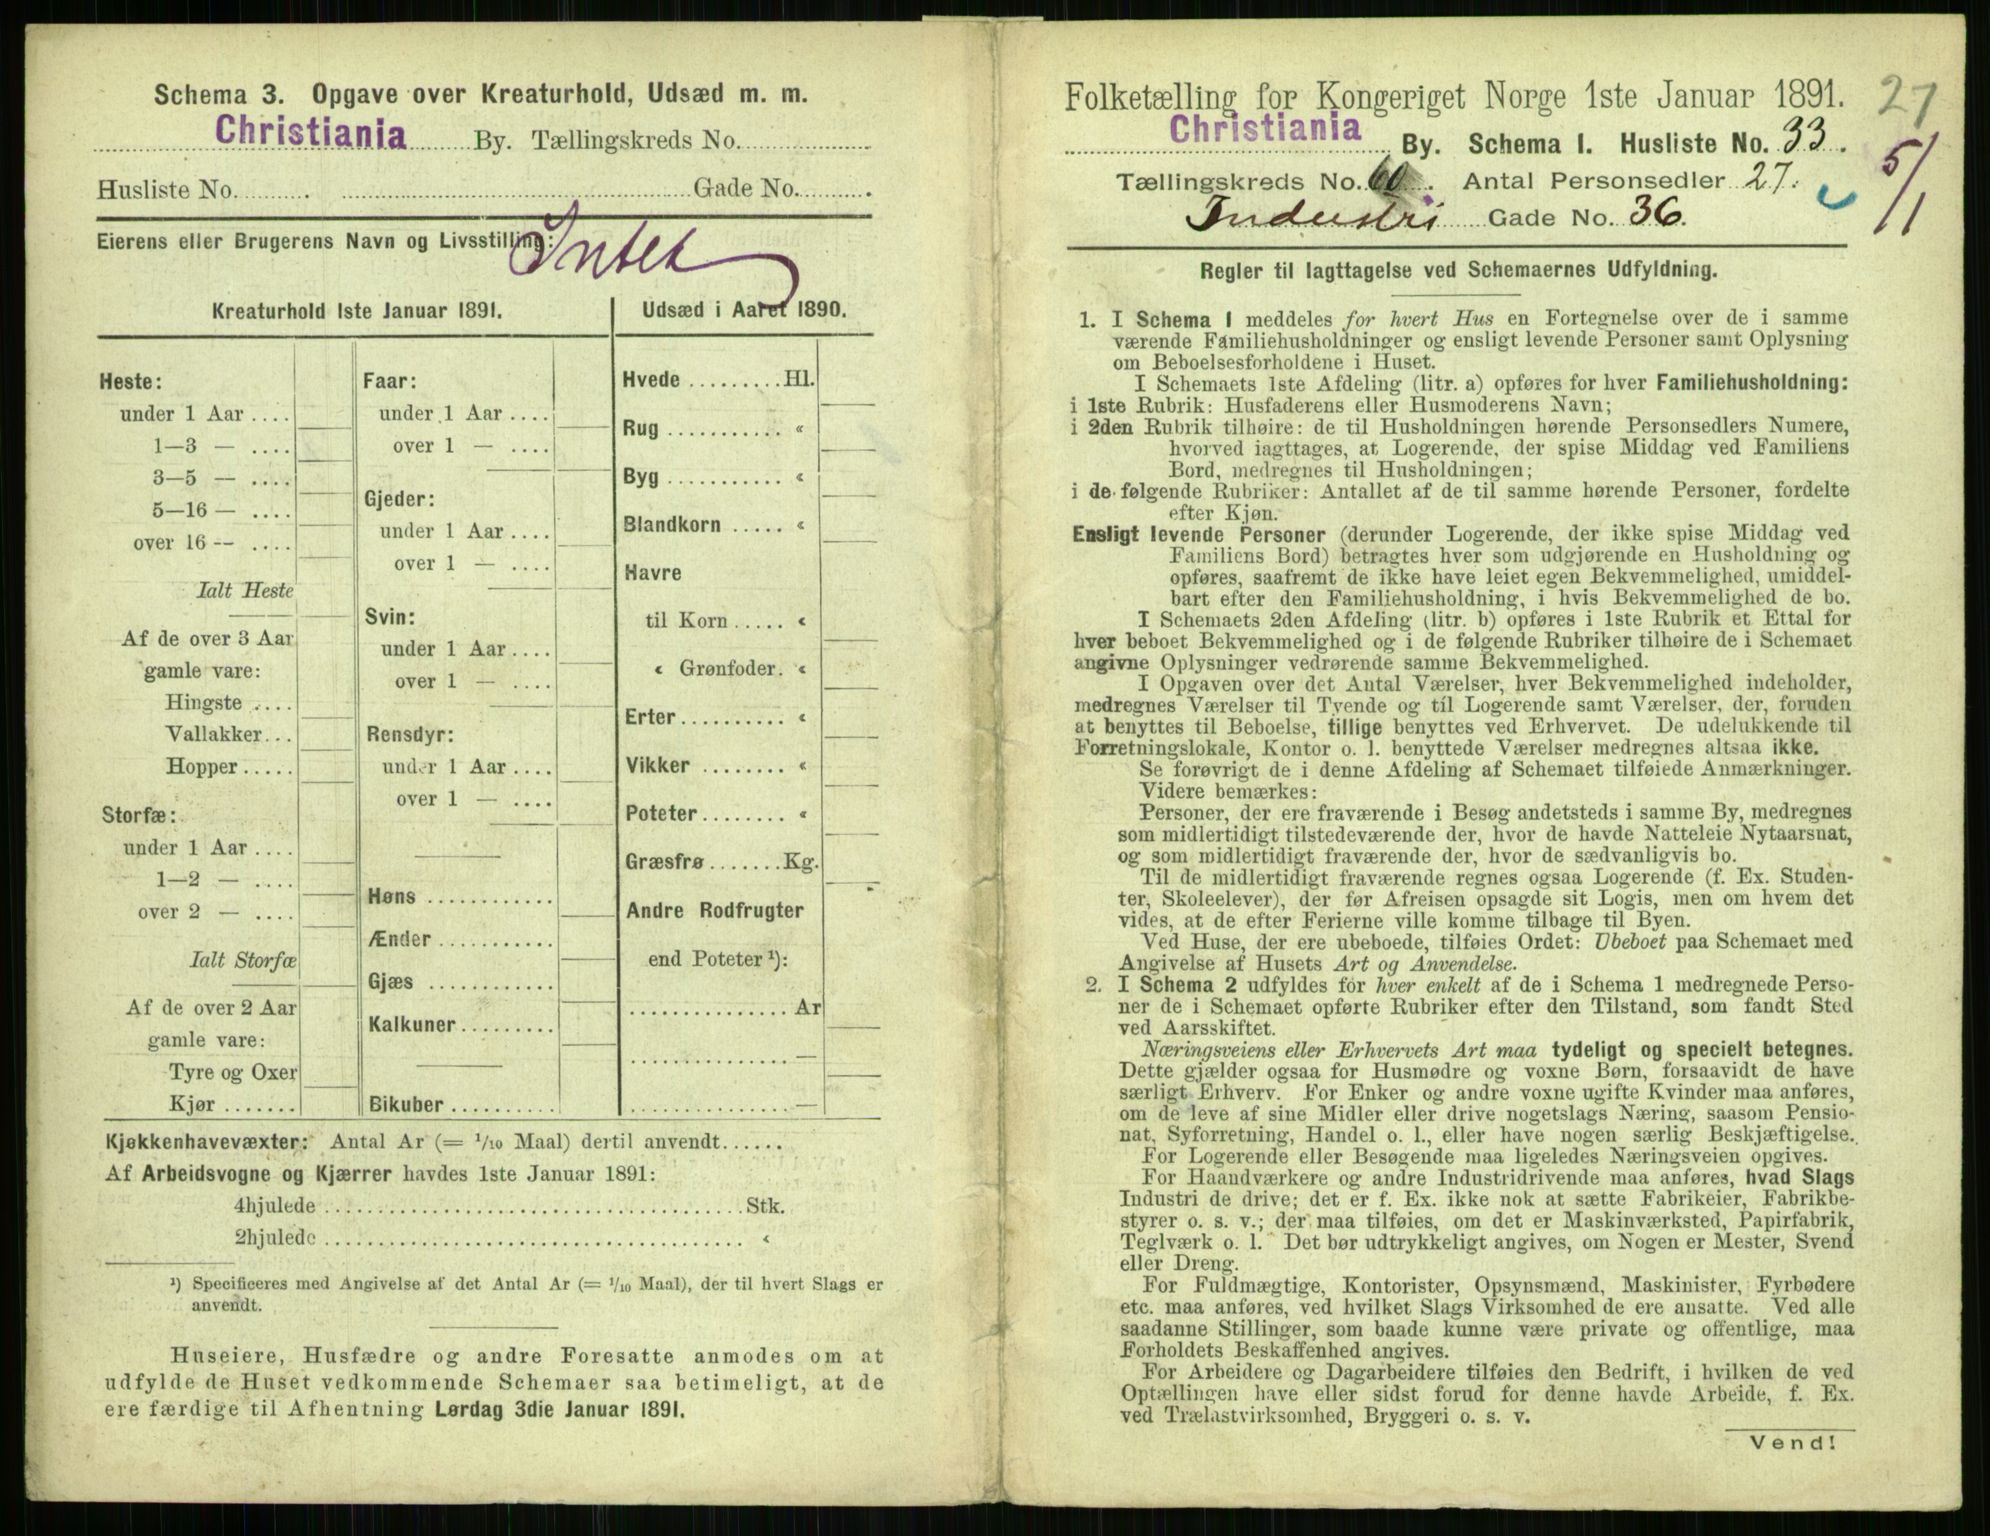 Schema 3. Opgave over Kreaturhold, Udsæd m. m.
Christiania By. Tællingskreds No.
Husliste No. Gade No.
Eierens eller Brugerens Navn og Livsstilling: Intet
Kreaturhold 1ste Januar 1891.
Heste:
under 1 Aar ....
1—3 — ....
3—5 — ....
5—16 — ....
over 16 — ....
Ialt Heste
Af de over 3 Aar
gamle vare:
Hingste ....
Vallakker...
Hopper.....
Storfæ:
under 1 Aar ....
1—2 — ....
over 2 — ....
Ialt Storfæ
Af de over 2 Aar
gamle vare:
Tyre og Oxer
Kjør .......
Faar:
under 1 Aar ....
over 1 — ....
Gjeder:
under 1 Aar ....
over 1 — ....
Svin:
under 1 Aar ....
over 1 — ....
Rensdyr:
under 1 Aar ....
over 1 — ....
Høns ............
Ænder ...........
Gjæs ............
Kalkuner.........
Bikuber ..........
Udsæd i Aaret 1890.
Hvede .........Hl.
Rug ........... «
Byg ........... «
Blandkorn ..... «
Havre
til Korn ..... «
« Grønfoder. «
Erter.......... «
Vikker ........ «
Poteter........ «
Græsfrø.......Kg.
Andre Rodfrugter
end Poteter ¹):
............... Ar
............... —
............... —
Kjøkkenhavevæxter: Antal Ar (= 1/10 Maal) dertil anvendt......
Af Arbeidsvogne og Kjærrer havdes 1ste Januar 1891:
4hjulede ........................................Stk.
2hjulede ........................................ «
¹) Specificeres med Angivelse af det Antal Ar (= 1/10 Maal), der til hvert Slags er
anvendt.
Huseiere, Husfædre og andre Foresatte anmodes om at
udfylde de Huset vedkommende Schemaer saa betimeligt, at de
ere færdige til Afhentning Lørdag 3die Januar 1891.
Folketælling for Kongeriget Norge 1ste Januar 1891. 27
Christiania By. Schema 1. Husliste No. 33.
5/1
Tællingskreds No. 60. Antal Personsedler 27.
Industri Gade No. 36.
Regler til Iagttagelse ved Schemaernes Udfyldning.
1. I Schema 1 meddeles for hvert Hus en Fortegnelse over de i samme
værende Familiehusholdninger og ensligt levende Personer samt Oplysning
om Beboelsesforholdene i Huset.
I Schemaets 1ste Afdeling (litr. a) opføres for hver Familiehusholdning:
i 1ste Rubrik: Husfaderens eller Husmoderens Navn;
i 2den Rubrik tilhøire: de til Husholdningen hørende Personsedlers Numere,
hvorved iagttages, at Logerende, der spise Middag ved Familiens
Bord, medregnes til Husholdningen;
i de følgende Rubriker: Antallet af de til samme hørende Personer, fordelte
efter Kjøn.
Ensligt levende Personer (derunder Logerende, der ikke spise Middag ved
Familiens Bord) betragtes hver som udgjørende en Husholdning og
opføres, saafremt de ikke have leiet egen Bekvemmelighed, umiddel-
bart efter den Familiehusholdning, i hvis Bekvemmelighed de bo.
I Schemaets 2den Afdeling (litr. b) opføres i 1ste Rubrik et Ettal for
hver beboet Bekvemmelighed og i de følgende Rubriker tilhøire de i Schemaet
angivne Oplysninger vedrørende samme Bekvemmelighed.
I Opgaven over det Antal Værelser, hver Bekvemmelighed indeholder,
medregnes Værelser til Tyende og til Logerende samt Værelser, der, foruden
at benyttes til Beboelse, tillige benyttes ved Erhvervet. De udelukkende til
Forretningslokale, Kontor o. l. benyttede Værelser medregnes altsaa ikke.
Se forøvrigt de i denne Afdeling af Schemaet tilføiede Anmærkninger.
Videre bemærkes:
Personer, der ere fraværende i Besøg andetsteds i samme By, medregnes
som midlertidigt tilstedeværende der, hvor de havde Natteleie Nytaarsnat,
og som midlertidigt fraværende der, hvor de sædvanligvis bo.
Til de midlertidigt fraværende regnes ogsaa Logerende (f. Ex. Studen-
ter, Skoleelever), der før Afreisen opsagde sit Logis, men om hvem det
vides, at de efter Ferierne ville komme tilbage til Byen.
Ved Huse, der ere ubeboede, tilføies Ordet: Ubeboet paa Schemaet med
Angivelse af Husets Art og Anvendelse.
2. I Schema 2 udfyldes for hver enkelt af de i Schema 1 medregnede Perso-
ner de i Schemaet opførte Rubriker efter den Tilstand, som fandt Sted
ved Aarsskiftet.
Næringsveiens eller Erhvervets Art maa tydeligt og specielt betegnes.
Dette gjælder ogsaa for Husmødre og voxne Børn, forsaavidt de have
særligt Erhverv. For Enker og andre voxne ugifte Kvinder maa anføres,
om de leve af sine Midler eller drive nogetslags Næring, saasom Pensio-
nat, Syforretning, Handel o. l., eller have nogen særlig Beskjæftigelse.
For Logerende eller Besøgende maa ligeledes Næringsveien opgives.
For Haandværkere og andre Industridrivende maa anføres, hvad Slags
Industri de drive; det er f. Ex. ikke nok at sætte Fabrikeier, Fabrikbe-
styrer o. s. v.; der maa tilføies, om det er Maskinværksted, Papirfabrik,
Teglværk o. l. Det bør udtrykkeligt angives, om Nogen er Mester, Svend
eller Dreng.
For Fuldmægtige, Kontorister, Opsynsmænd, Maskinister, Fyrbødere
etc. maa anføres, ved hvilket Slags Virksomhed de ere ansatte. Ved alle
saadanne Stillinger, som baade kunne være private og offentlige, maa
Forholdets Beskaffenhed angives.
For Arbeidere og Dagarbeidere tilføies den Bedrift, i hvilken de ved
Optællingen have eller sidst forud for denne havde Arbeide, f. Ex.
ved Trælastvirksomhed, Bryggeri o. s. v.
Vend!